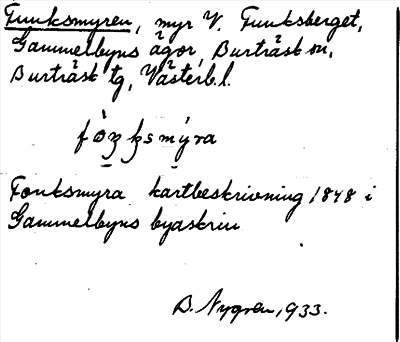 Funksmyren, myr V. Funksberget,
Gammelbyns ägor, Burträsk sn,
Burträsk tg, Västerb. l.
Fonksmyra kartbeskrivning 1848 i
Gammelbyns byaskrin
B. Nygren, 1933.